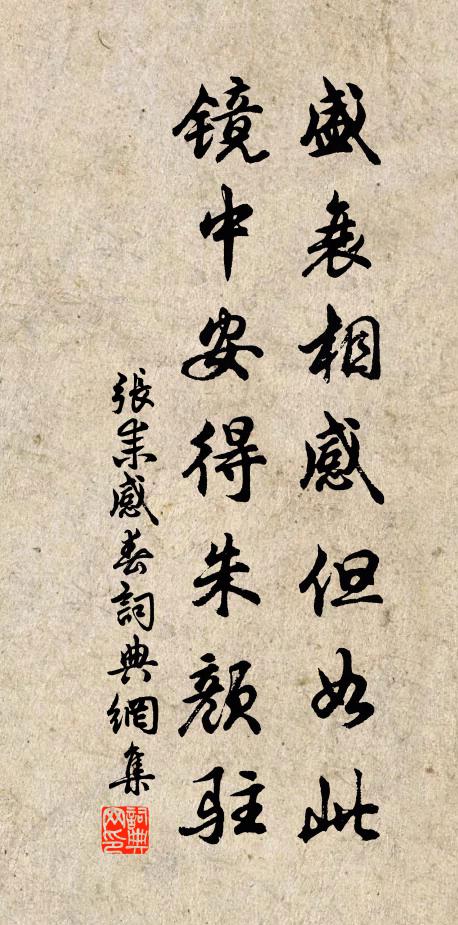 盛衰相感但如此
鏡中安得朱颜駐
張耒感春詞典網集
詞典网印